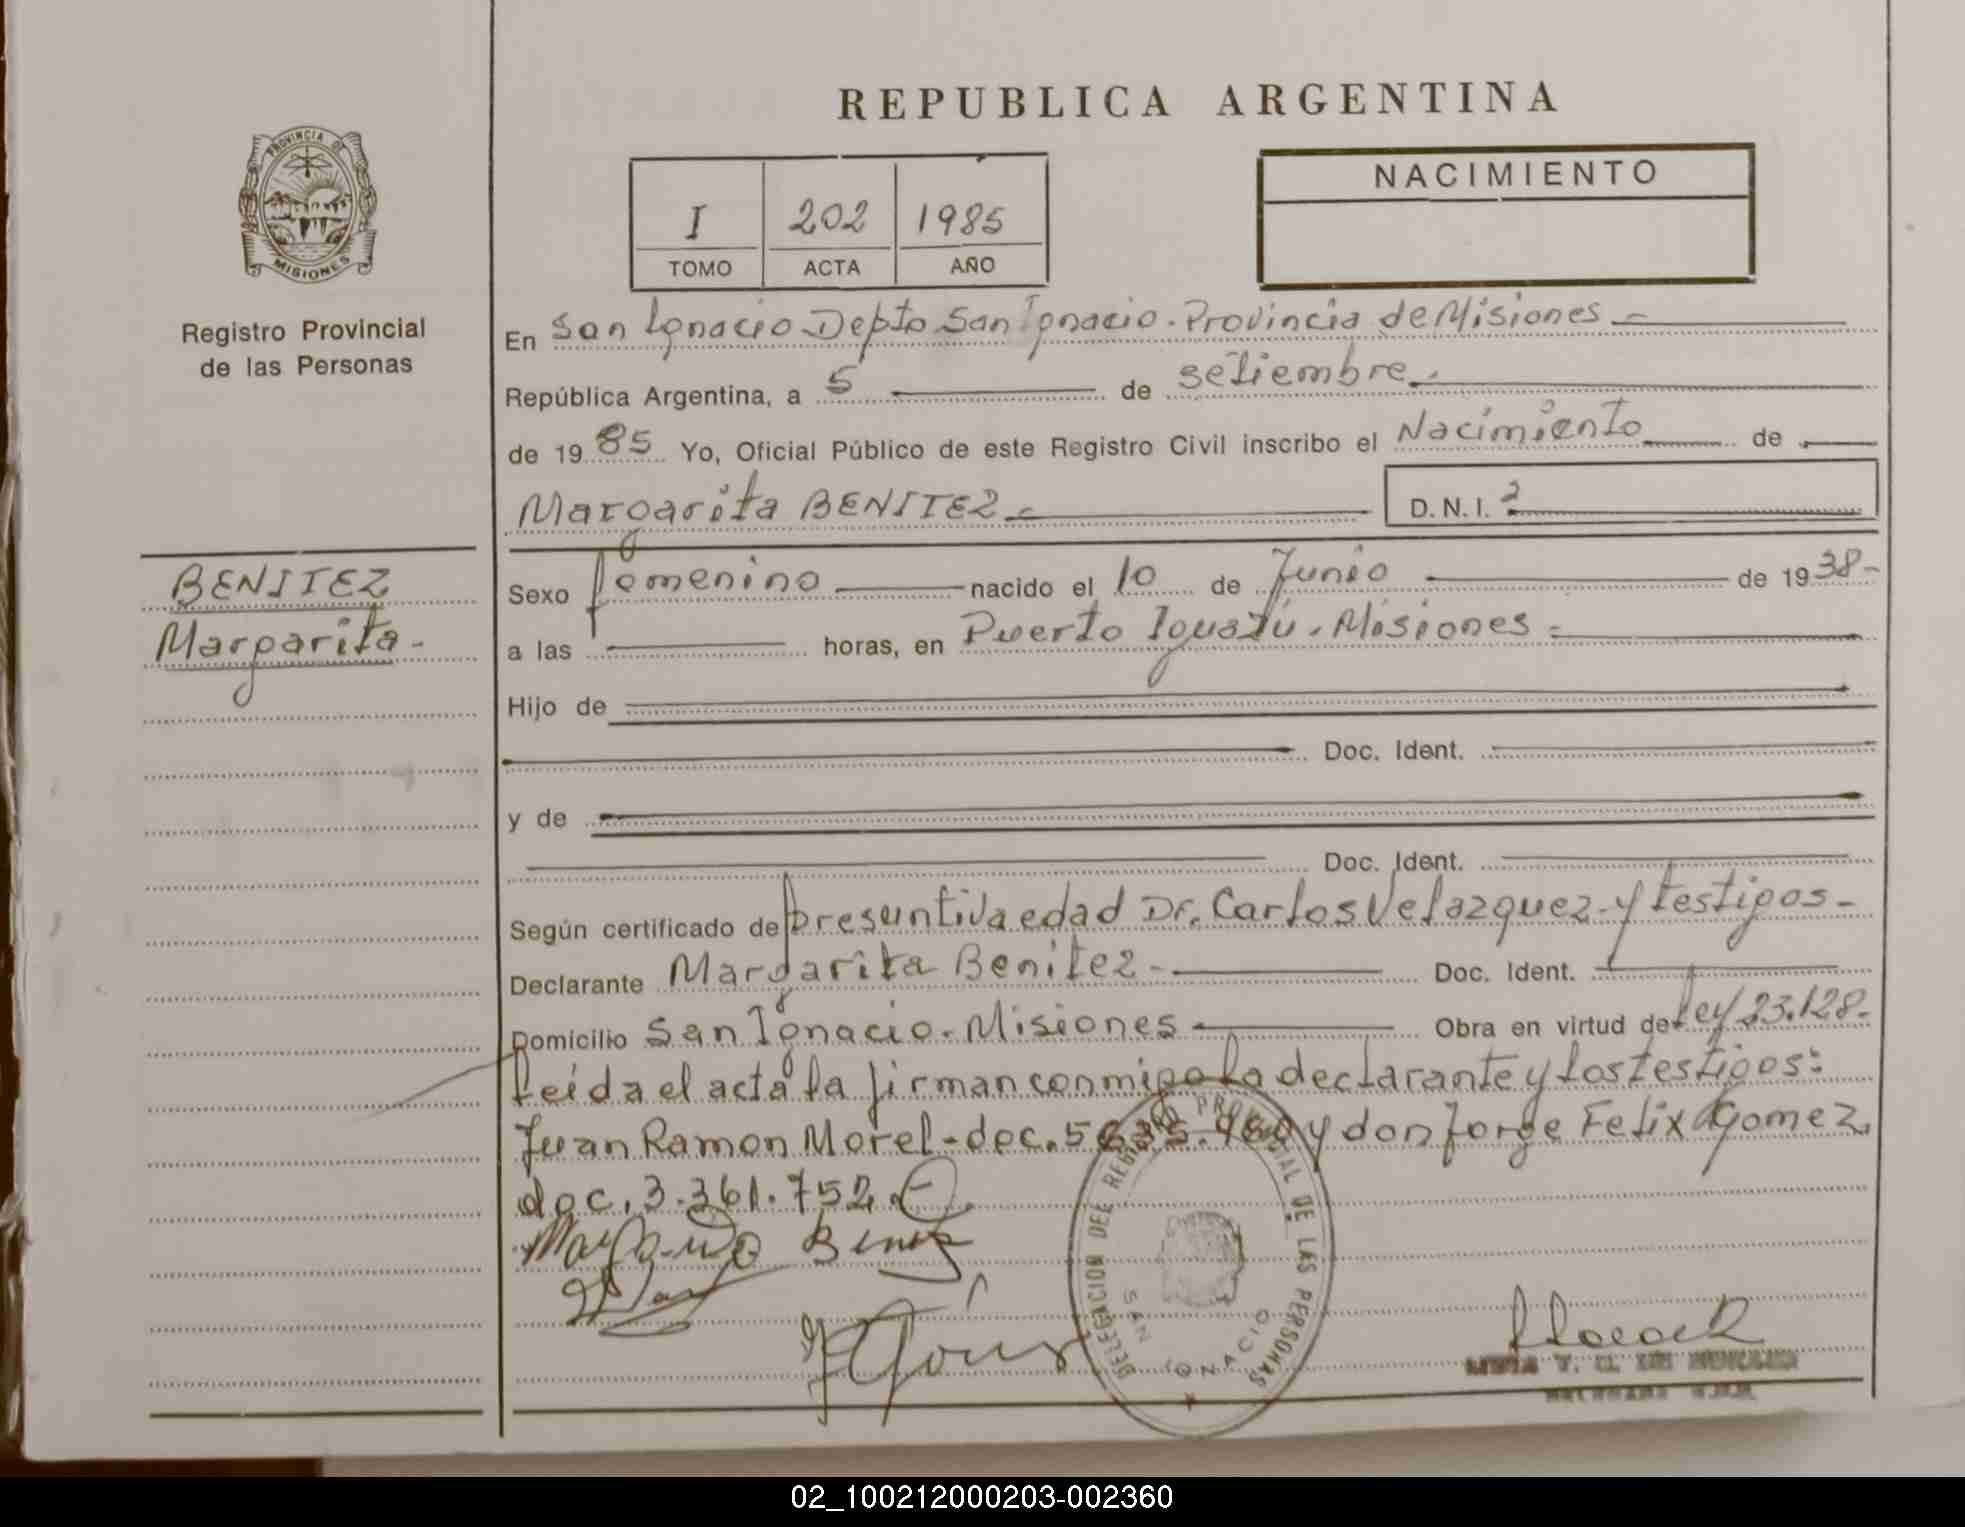 REPUBLICA ARGENTINA
PROVINCIA DE
MISIONES
Registro Provincial
de las Personas
I 202 1985
TOMO ACTA AÑO
NACIMIENTO
En San Ignacio Depto San Ignacio - Provincia de Misiones
República Argentina, a 5 de setiembre
de 1985 Yo, Oficial Público de este Registro Civil inscribo el Nacimiento de
Margarita BENITEZ D.N.I.
BENITEZ
Margarita -
Sexo femenino nacido el 10 de Junio de 1938-
a las horas, en Puerto Iguazú - Misiones
Hijo de
Doc. Ident.
y de
Doc. Ident.
Según certificado de presuntiva edad Dr. Carlos Velazquez - y testigos -
Declarante Margarita Benitez - Doc. Ident.
Domicilio San Ignacio - Misiones Obra en virtud de ley 23.128 -
Leída el acta la firman conmigo la declarante y los testigos:
Juan Ramon Morel - doc. y don Jorge Felix Gomez.
doc. 3.361.752.
DELEGACION DEL REGISTRO PROVINCIAL DE LAS PERSONAS
SAN IGNACIO
02_100212000203-002360